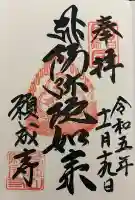 奉拝
令和五年
十一月十九日
阿弥陀如来
願成寺